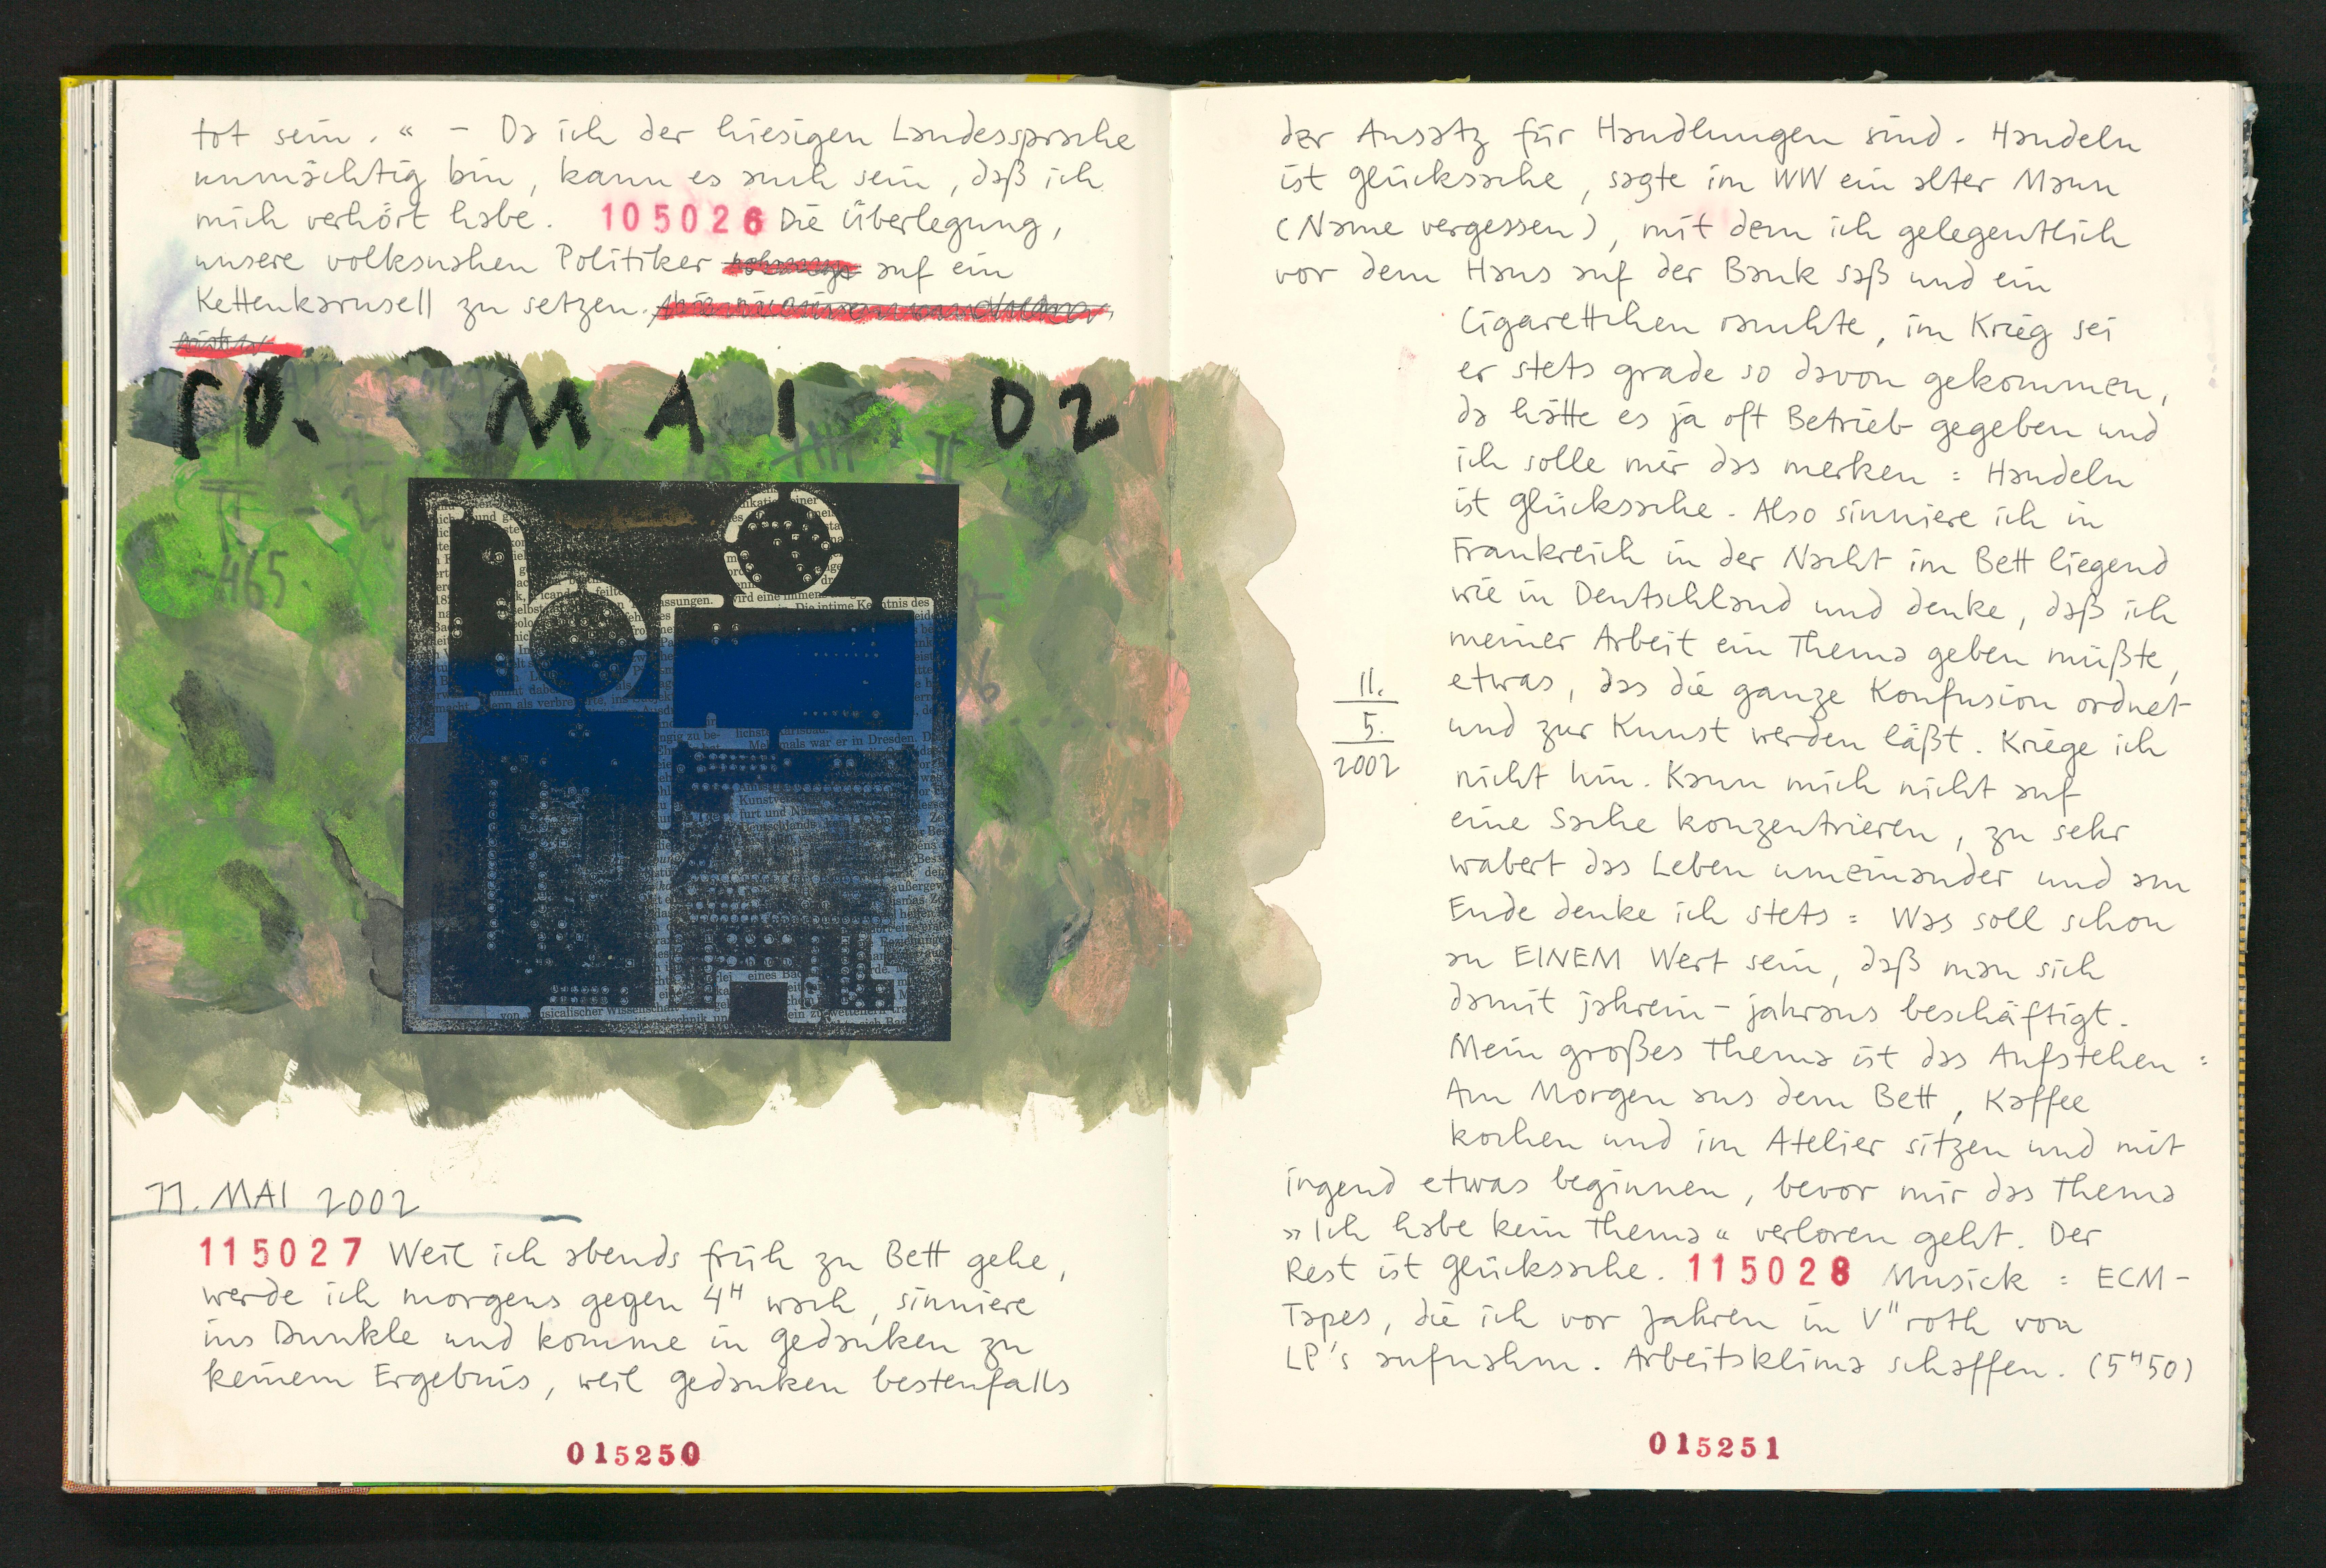 tot sein.“ – Da ich der hiesigen Landessprache
unmächtig bin, kann es auch sein, daß ich
mich verhört habe. 105026 Die Überlegung,
unsere volksnahen Politiker auf ein
Kettenkarusell zu setzen.
10. MAI 02
465
11. MAI 2002
115027 Weil ich abends früh zu Bett gehe,
werde ich morgens gegen 4H wach, sinniere
ins Dunkle und komme in Gedanken zu
keinem Ergebnis, weil Gedanken bestenfalls
015250
der Ansatz für Handlungen sind. Handeln
ist Glücksache, sagte im WW ein alter Mann
(Name vergessen), mit dem ich gelegentlich
vor dem Haus auf der Bank saß und ein
Cigarettchen rauchte, im Krieg sei
er stets grade so davon gekommen,
da hätte es ja oft Betrieb gegeben und
ich solle mir das merken: Handeln
ist Glücksache. Also sinniere ich in
Frankreich in der Nacht im Bett liegend
wie in Deutschland und denke, daß ich
meiner Arbeit ein Thema geben müßte,
etwas, das die ganze Konfusion ordnet
und zur Kunst werden läßt. Kriege ich
nicht hin. Kann mich nicht auf
eine Sache konzentrieren, zu sehr
wabert das Leben umeinander und am
Ende denke ich stets: Was soll schon
an EINEM Wert sein, daß man sich
damit jahrein-jahraus beschäftigt.
Mein großes Thema ist das Aufstehen:
Am Morgen aus dem Bett, Kaffee
kochen und im Atelier sitzen und mit
irgend etwas beginnen, bevor mir das Thema
»Ich habe kein Thema« verloren geht. Der
Rest ist Glücksache. 115028 Musick: ECM-
Tapes, die ich vor Jahren in V"roth von
LP's aufnahm. Arbeitsklima schaffen. (5H50)
11.
5.
2002
015251